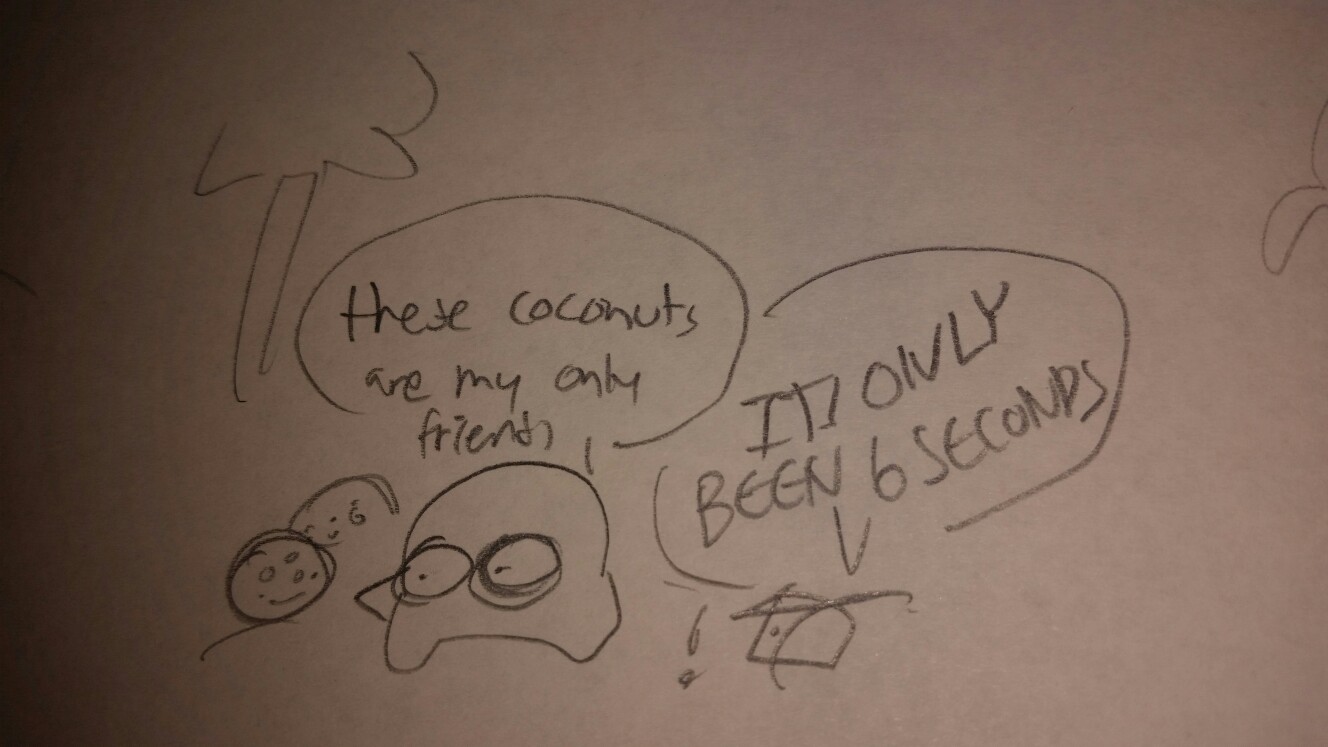 these coconuts
are my only
friends
IT'S ONLY
BEEN 6 SECONDS
!